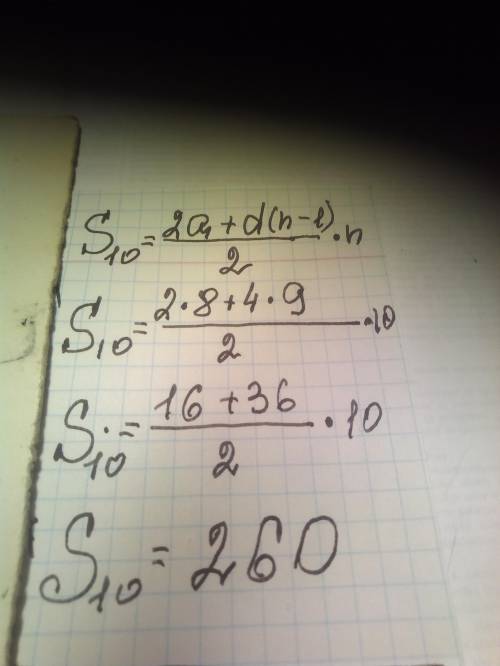 S₁₀ = (2a₁ + d(n-1))/2 · n
S₁₀ = (2·8 + 4·9)/2 · 10
S₁₀ = (16 + 36)/2 · 10
S₁₀ = 260